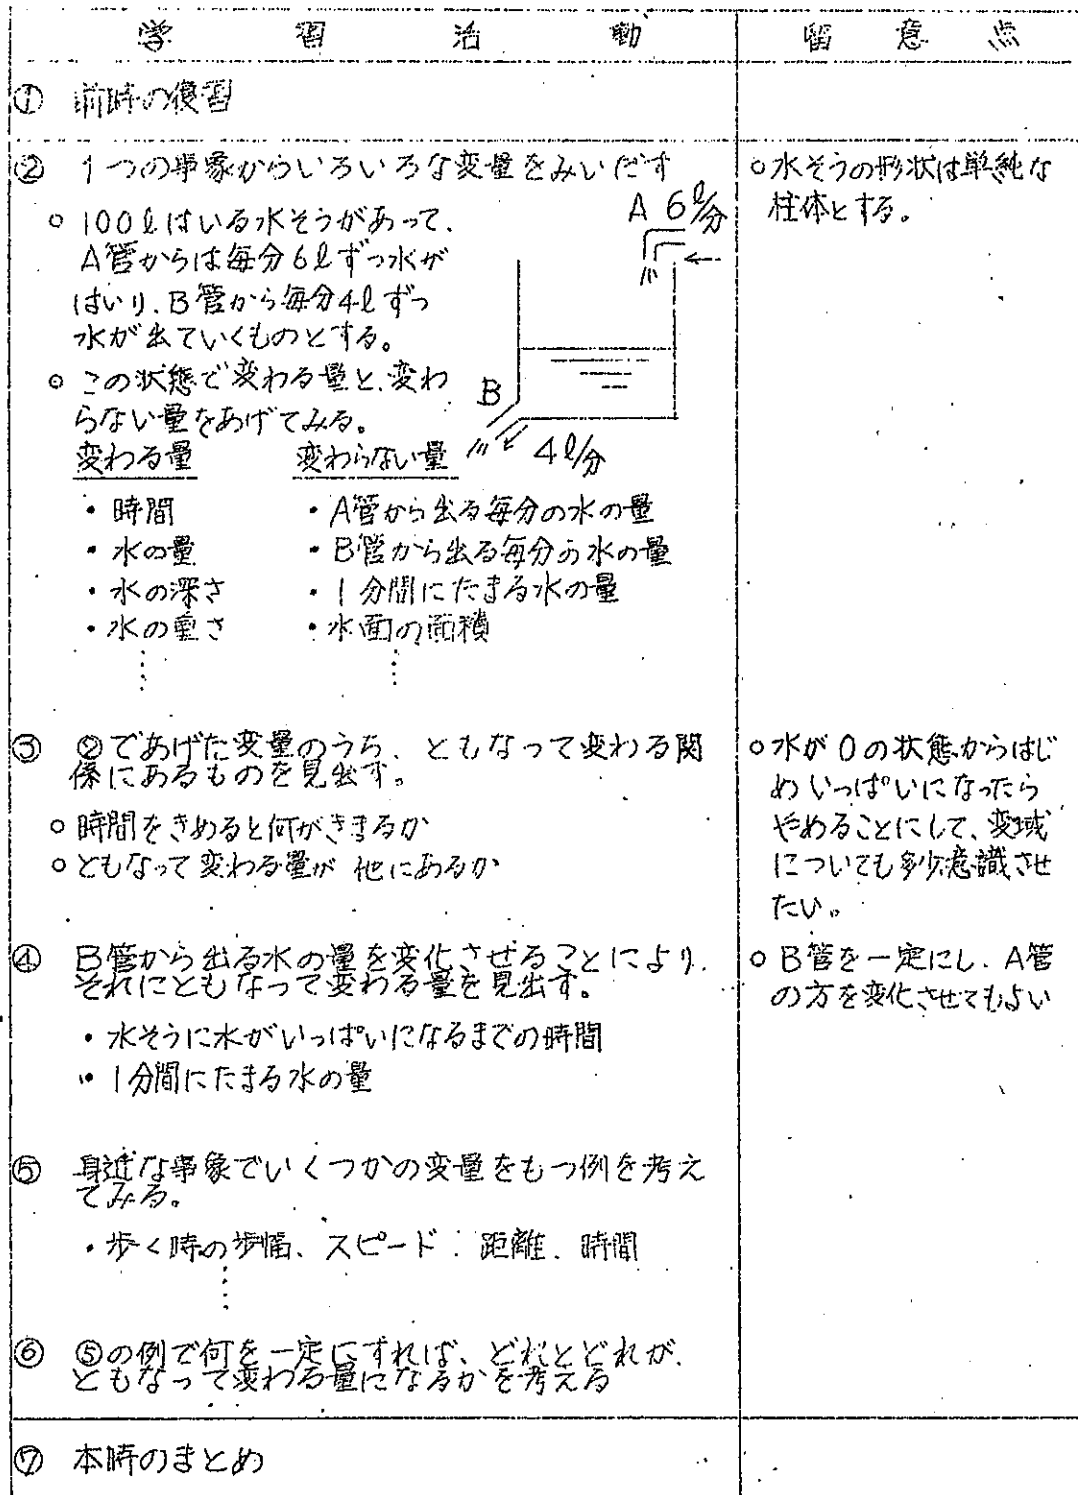 学習活動 留意点
① 前時の復習
② 1つの事象からいろいろな変量をみいだす
○水そうの形状は単純な
柱体とする。
○ 100ℓはいる水そうがあって、
A管からは毎分6ℓずつ水が
はいり、B管から毎分4ℓずつ
水が出ていくものとする。
A 6ℓ/分
○ この状態で変わる量と、変わ
らない量をあげてみる。
B
4ℓ/分
変わる量 変わらない量
・時間 ・A管から出る毎分の水の量
・水の量 ・B管から出る毎分の水の量
・水の深さ ・1分間にたまる水の量
・水の重さ ・水面の面積
③ ②であげた変量のうち、ともなって変わる関
係にあるものを見出す。
○時間をきめると何がきまるか
○ともなって変わる量が他にあるか
○水が0の状態からはじ
めいっぱいになったら
やめることにして、変域
についても多少意識させ
たい。
④ B管から出る水の量を変化させることにより、
それにともなって変わる量を見出す。
・水そうに水がいっぱいになるまでの時間
・1分間にたまる水の量
○B管を一定にし、A管
の方を変化させてもよい
⑤ 身近な事象でいくつかの変量をもつ例を考え
てみる。
・歩く時の歩幅、スピード、距離、時間
⑥ ⑤の例で何を一定にすれば、どれとどれが、
ともなって変わる量になるかを考える
⑦ 本時のまとめ